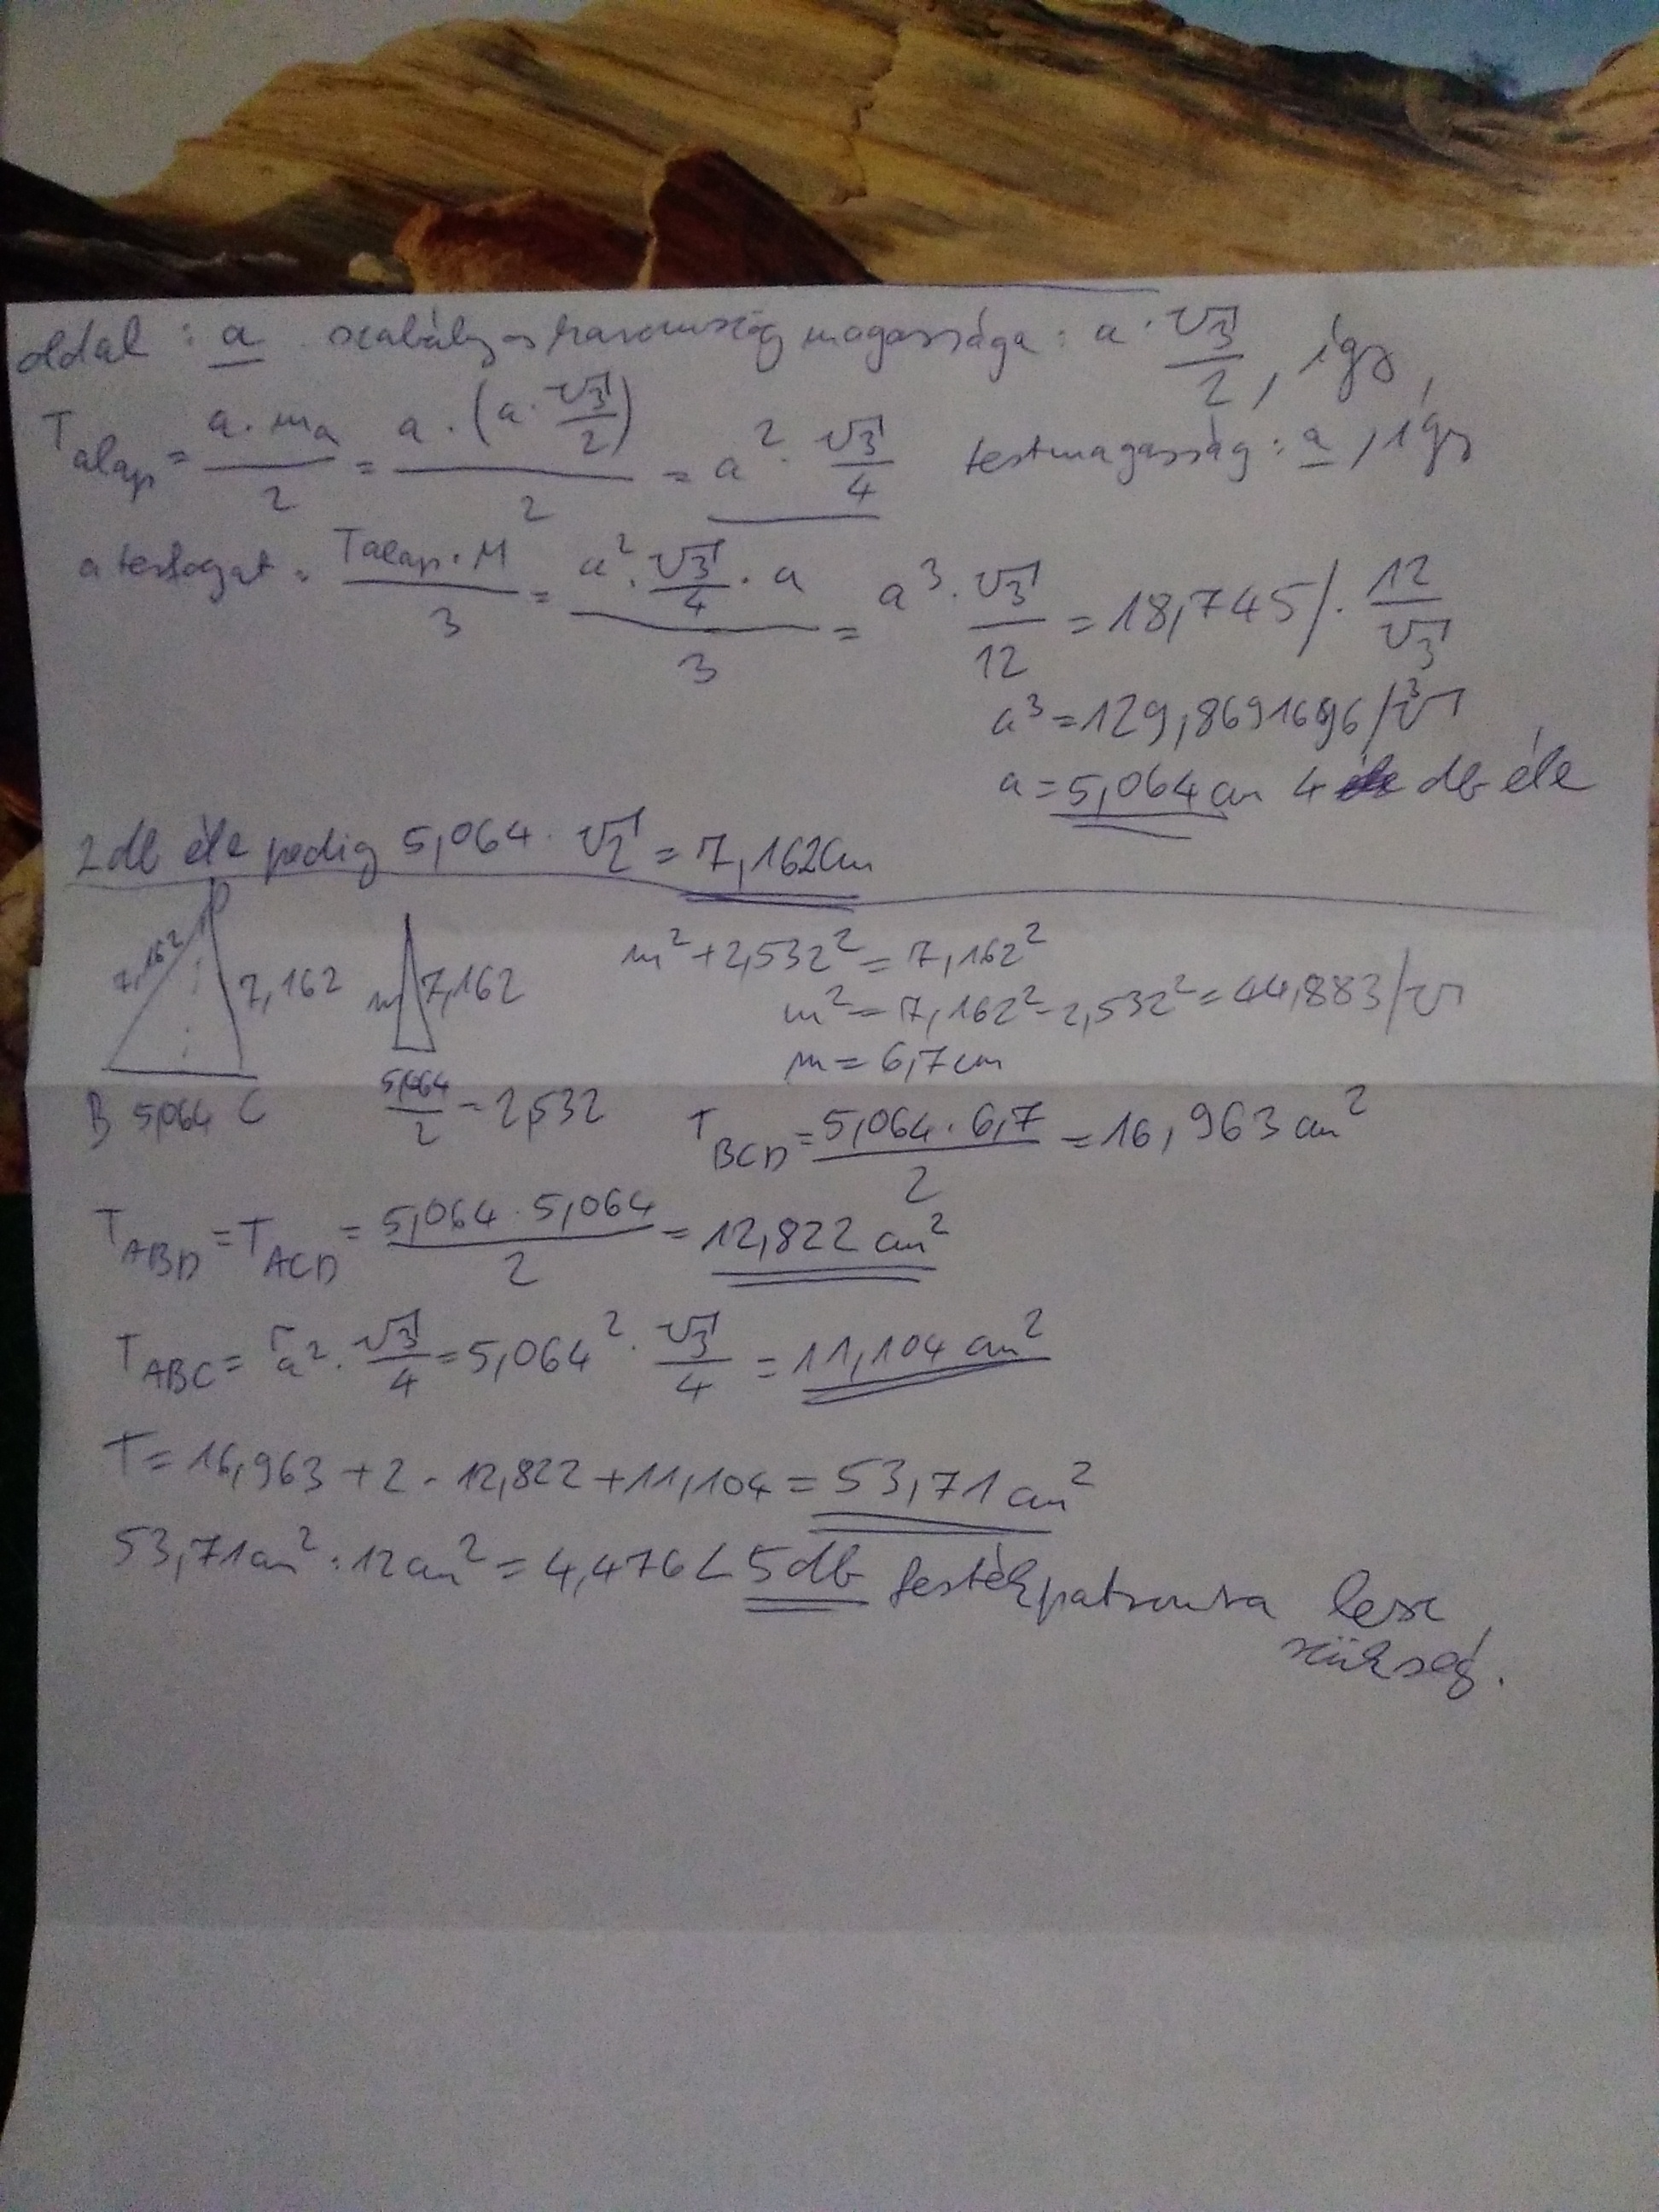 oldal : a szabályos háromszög magassága : a · √3/2, így
T alap = a · ma / 2 = a · (a · √3/2) / 2 = a² · √3/4 testmagasság : a, így
a térfogat = Talap · M / 3 = a² · √3/4 · a / 3 = a³ · √3/12 = 18,745 /· 12/√3
a³ = 129,8691696 /³√
a = 5,064 cm 4 db éle
2 db éle pedig 5,064 · √2 = 7,162cm
D
7,162 7,162 m 7,162 m² + 2,532² = 7,162²
m² = 7,162² - 2,532² = 44,883 /√
m = 6,7 cm
B 5,064 C 5,064/2 = 2,532 T BCD = 5,064 · 6,7 / 2 = 16,963 cm²
T ABD = T ACD = 5,064 · 5,064 / 2 = 12,822 cm²
T ABC = a² · √3/4 = 5,064² · √3/4 = 11,104 cm²
T = 16,963 + 2 · 12,822 + 11,104 = 53,71 cm²
53,71cm² : 12cm² = 4,476 < 5db festékpatronra lesz
szükség.